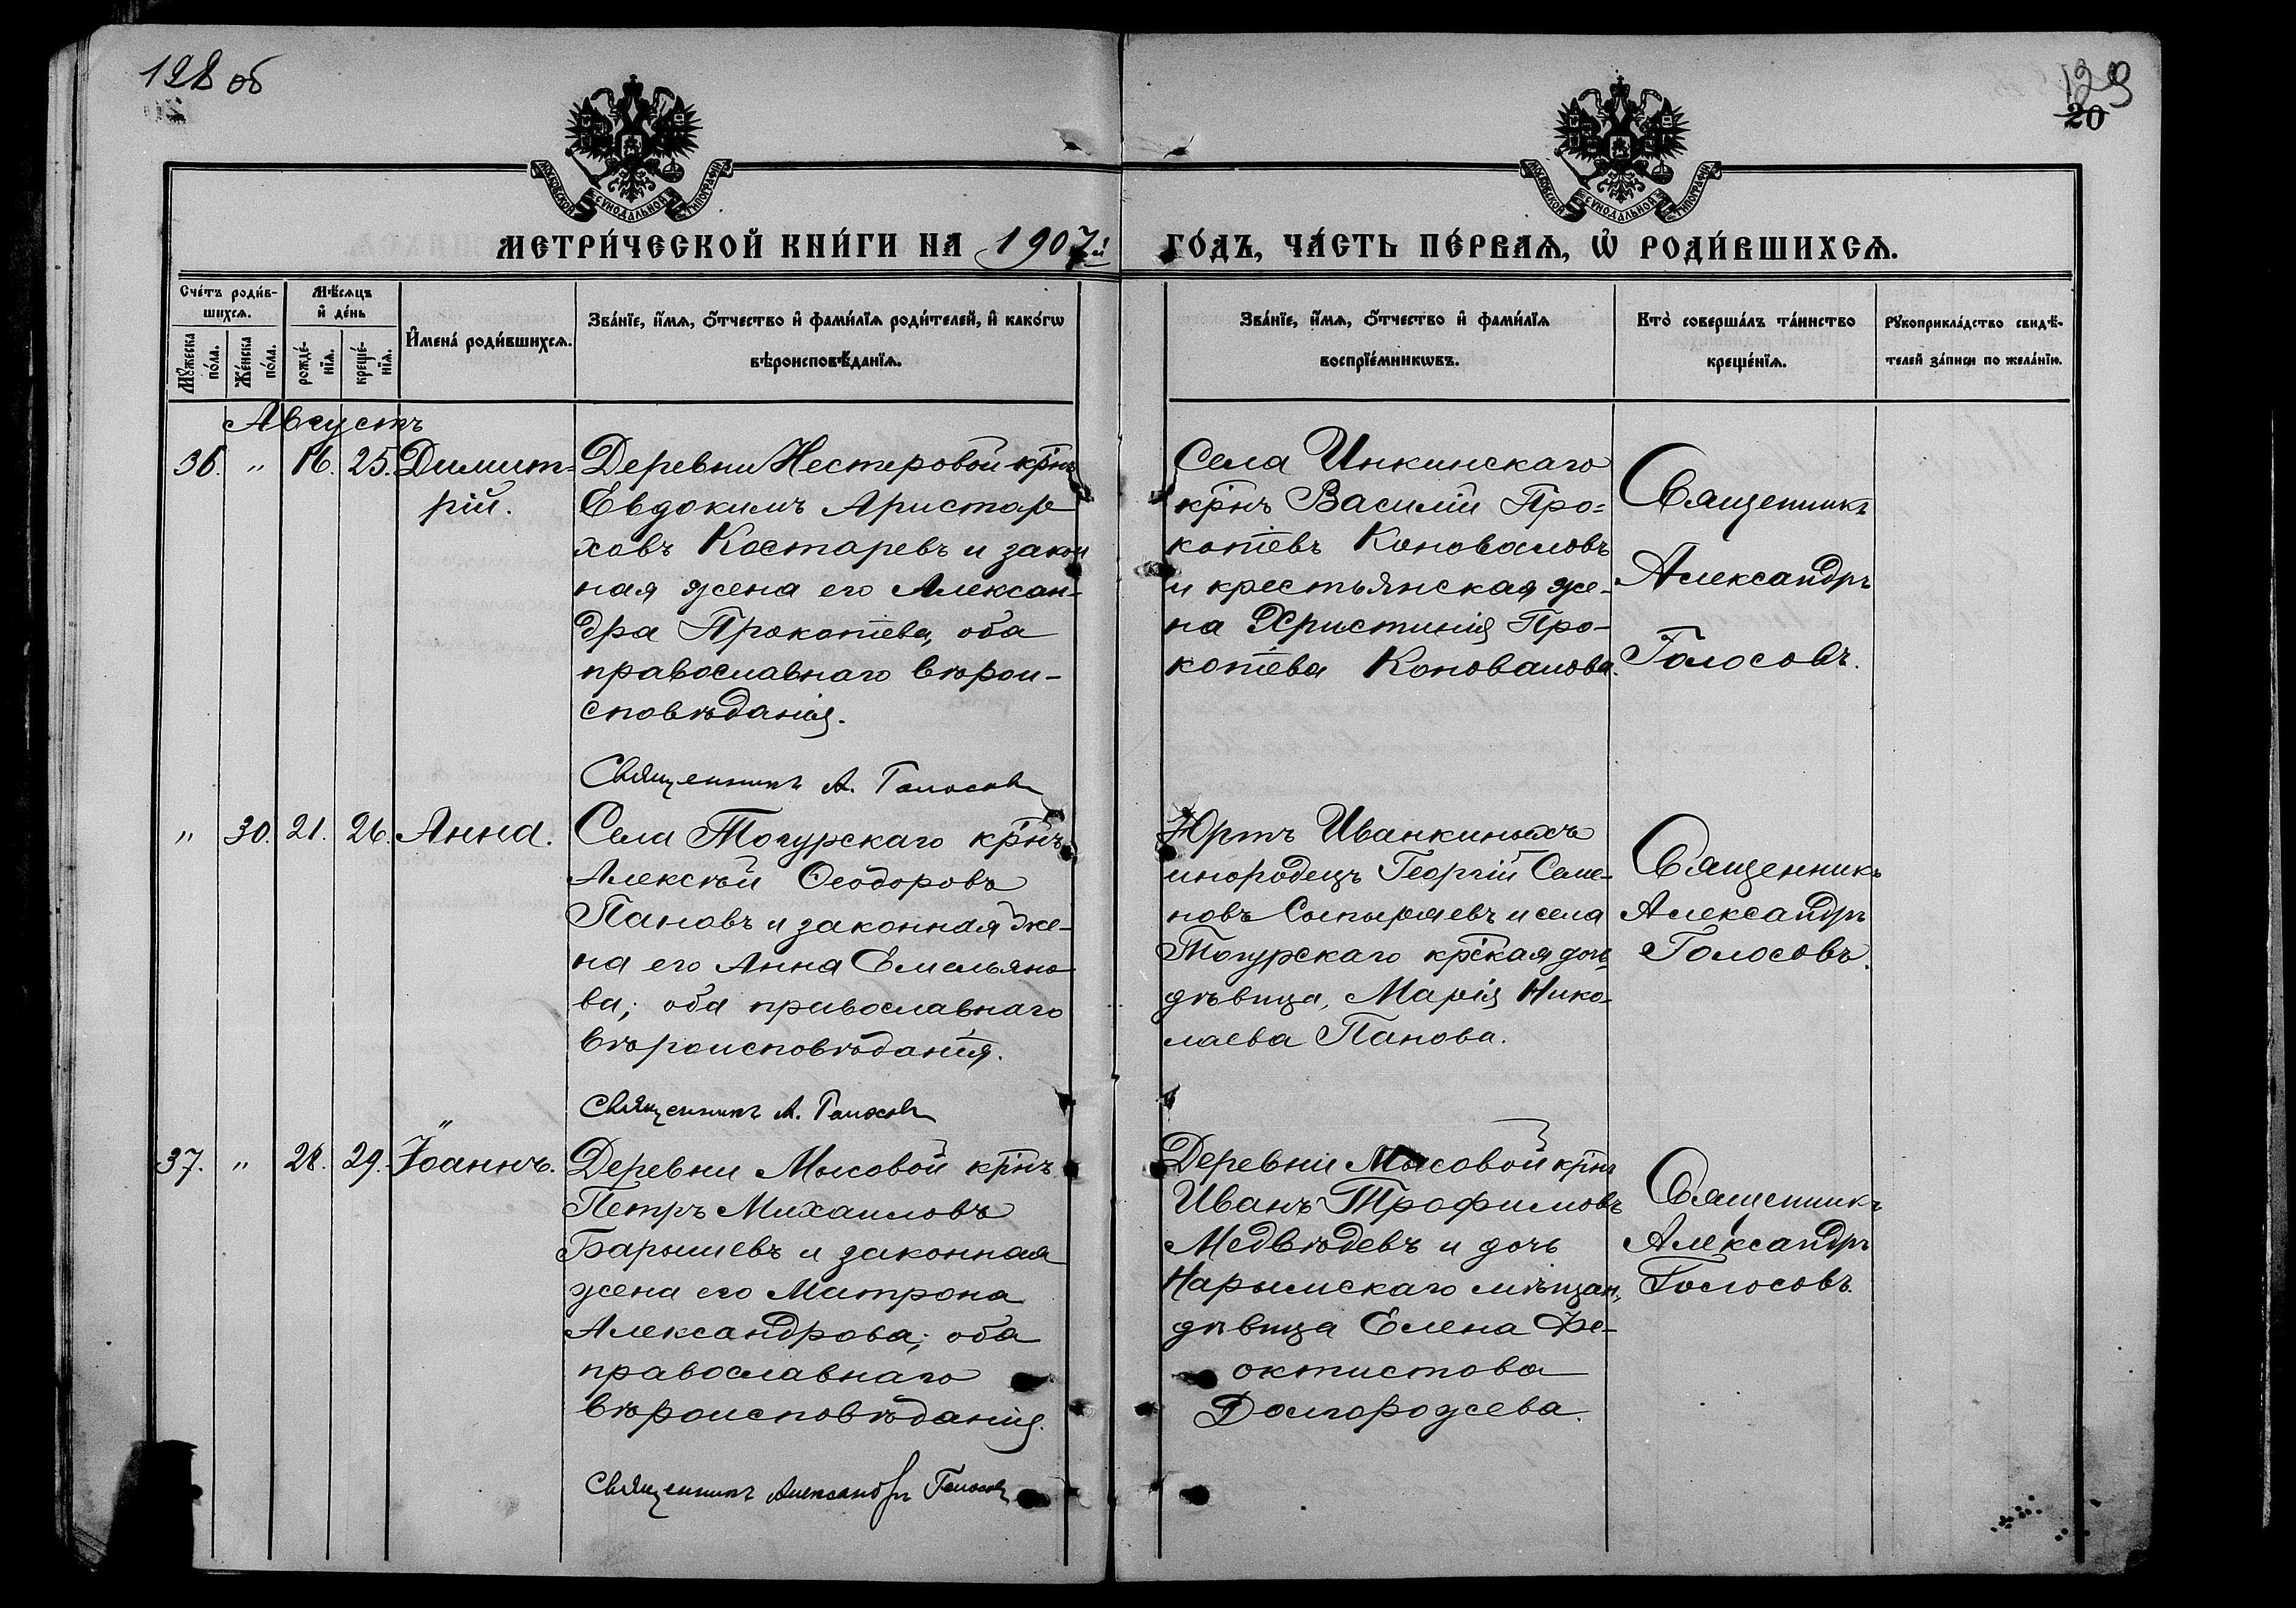 128 об
129
20
МОСКОВСКОЙ СѴНОДАЛЬНОЙ ТИПОГРАФІИ
МОСКОВСКОЙ СѴНОДАЛЬНОЙ ТИПОГРАФІИ
МЕТРИ́ЧЕСКОЙ КНИ́ГИ НА 1907й ГО́ДЪ, ЧА́СТЬ ПЕ́РВАѦ, Ѿ РОДИ́ВШИХСѦ.
Сче́тъ роди́в-
шихсѧ.
Мꙋ́жеска
по́ла.
Же́нска
по́ла.
Мѣ́сѧцъ
и҆ де́нь
рожде́-
нїѧ.
креще́-
нїѧ.
И҆мена̀ роди́вшихсѧ.
Зва́нїе, и҆́мѧ, ѻ҆́тчество и҆ фами́лїѧ роди́телей, и҆ како́гѡ
вѣроисповѣ́данїѧ.
Зва́нїе, и҆́мѧ, ѻ҆́тчество и҆ фами́лїѧ
воспрїе́мникѡвъ.
Кто̀ соверша́лъ та́инство
креще́нїѧ.
Рꙋкоприкла́дство свидѣ́-
телей за́писи по жела́нїю.
Августъ
36. " 16. 25. Димит-
рій.
Деревни Нестеровой кр̅нъ
Евдокимъ Аристар
ховъ Костаревъ и закон
ная жена его Алексан-
дра Прокопіева, оба
православнаго вѣрои-
сповѣданія.
Священникъ А. Голосовъ
Села Инкинскаго
кр̅нъ Василій Про-
копіевъ Коноваловъ
и крестьянская же-
на Христинія Про-
копіева Коновалова.
Священникъ
Александръ
Голосовъ.
" 30. 21. 26. Анна.
Села Тогурскаго кр̅нъ
Алексѣй Ѳеодоровъ
Пановъ и законная же-
на его Анна Емельяно-
ва; оба православнаго
вѣроисповѣданія.
Священникъ А. Голосовъ
Юртъ Иванкиныхъ
инородецъ Георгій Семе-
новъ и села
Тогурскаго кр̅ская дочь
дѣвица, Марія Нико-
лаева Панова.
Священникъ
Александръ
Голосовъ.
37. " 28. 29. Іоаннъ.
Деревни Мысовой кр̅нъ
Петръ Михаиловъ
Барышевъ и законная
жена его Матрона
Александрова; оба
православнаго
вѣроисповѣданія.
Священникъ Александръ Голосовъ
Деревни Мысовой кр̅нъ
Иванъ Трофимовъ
Медвѣдевъ и дочь
Нарымскаго мѣщан.
дѣвица Елена Фе-
октистова
Долгорожева.
Священникъ
Александръ
Голосовъ.